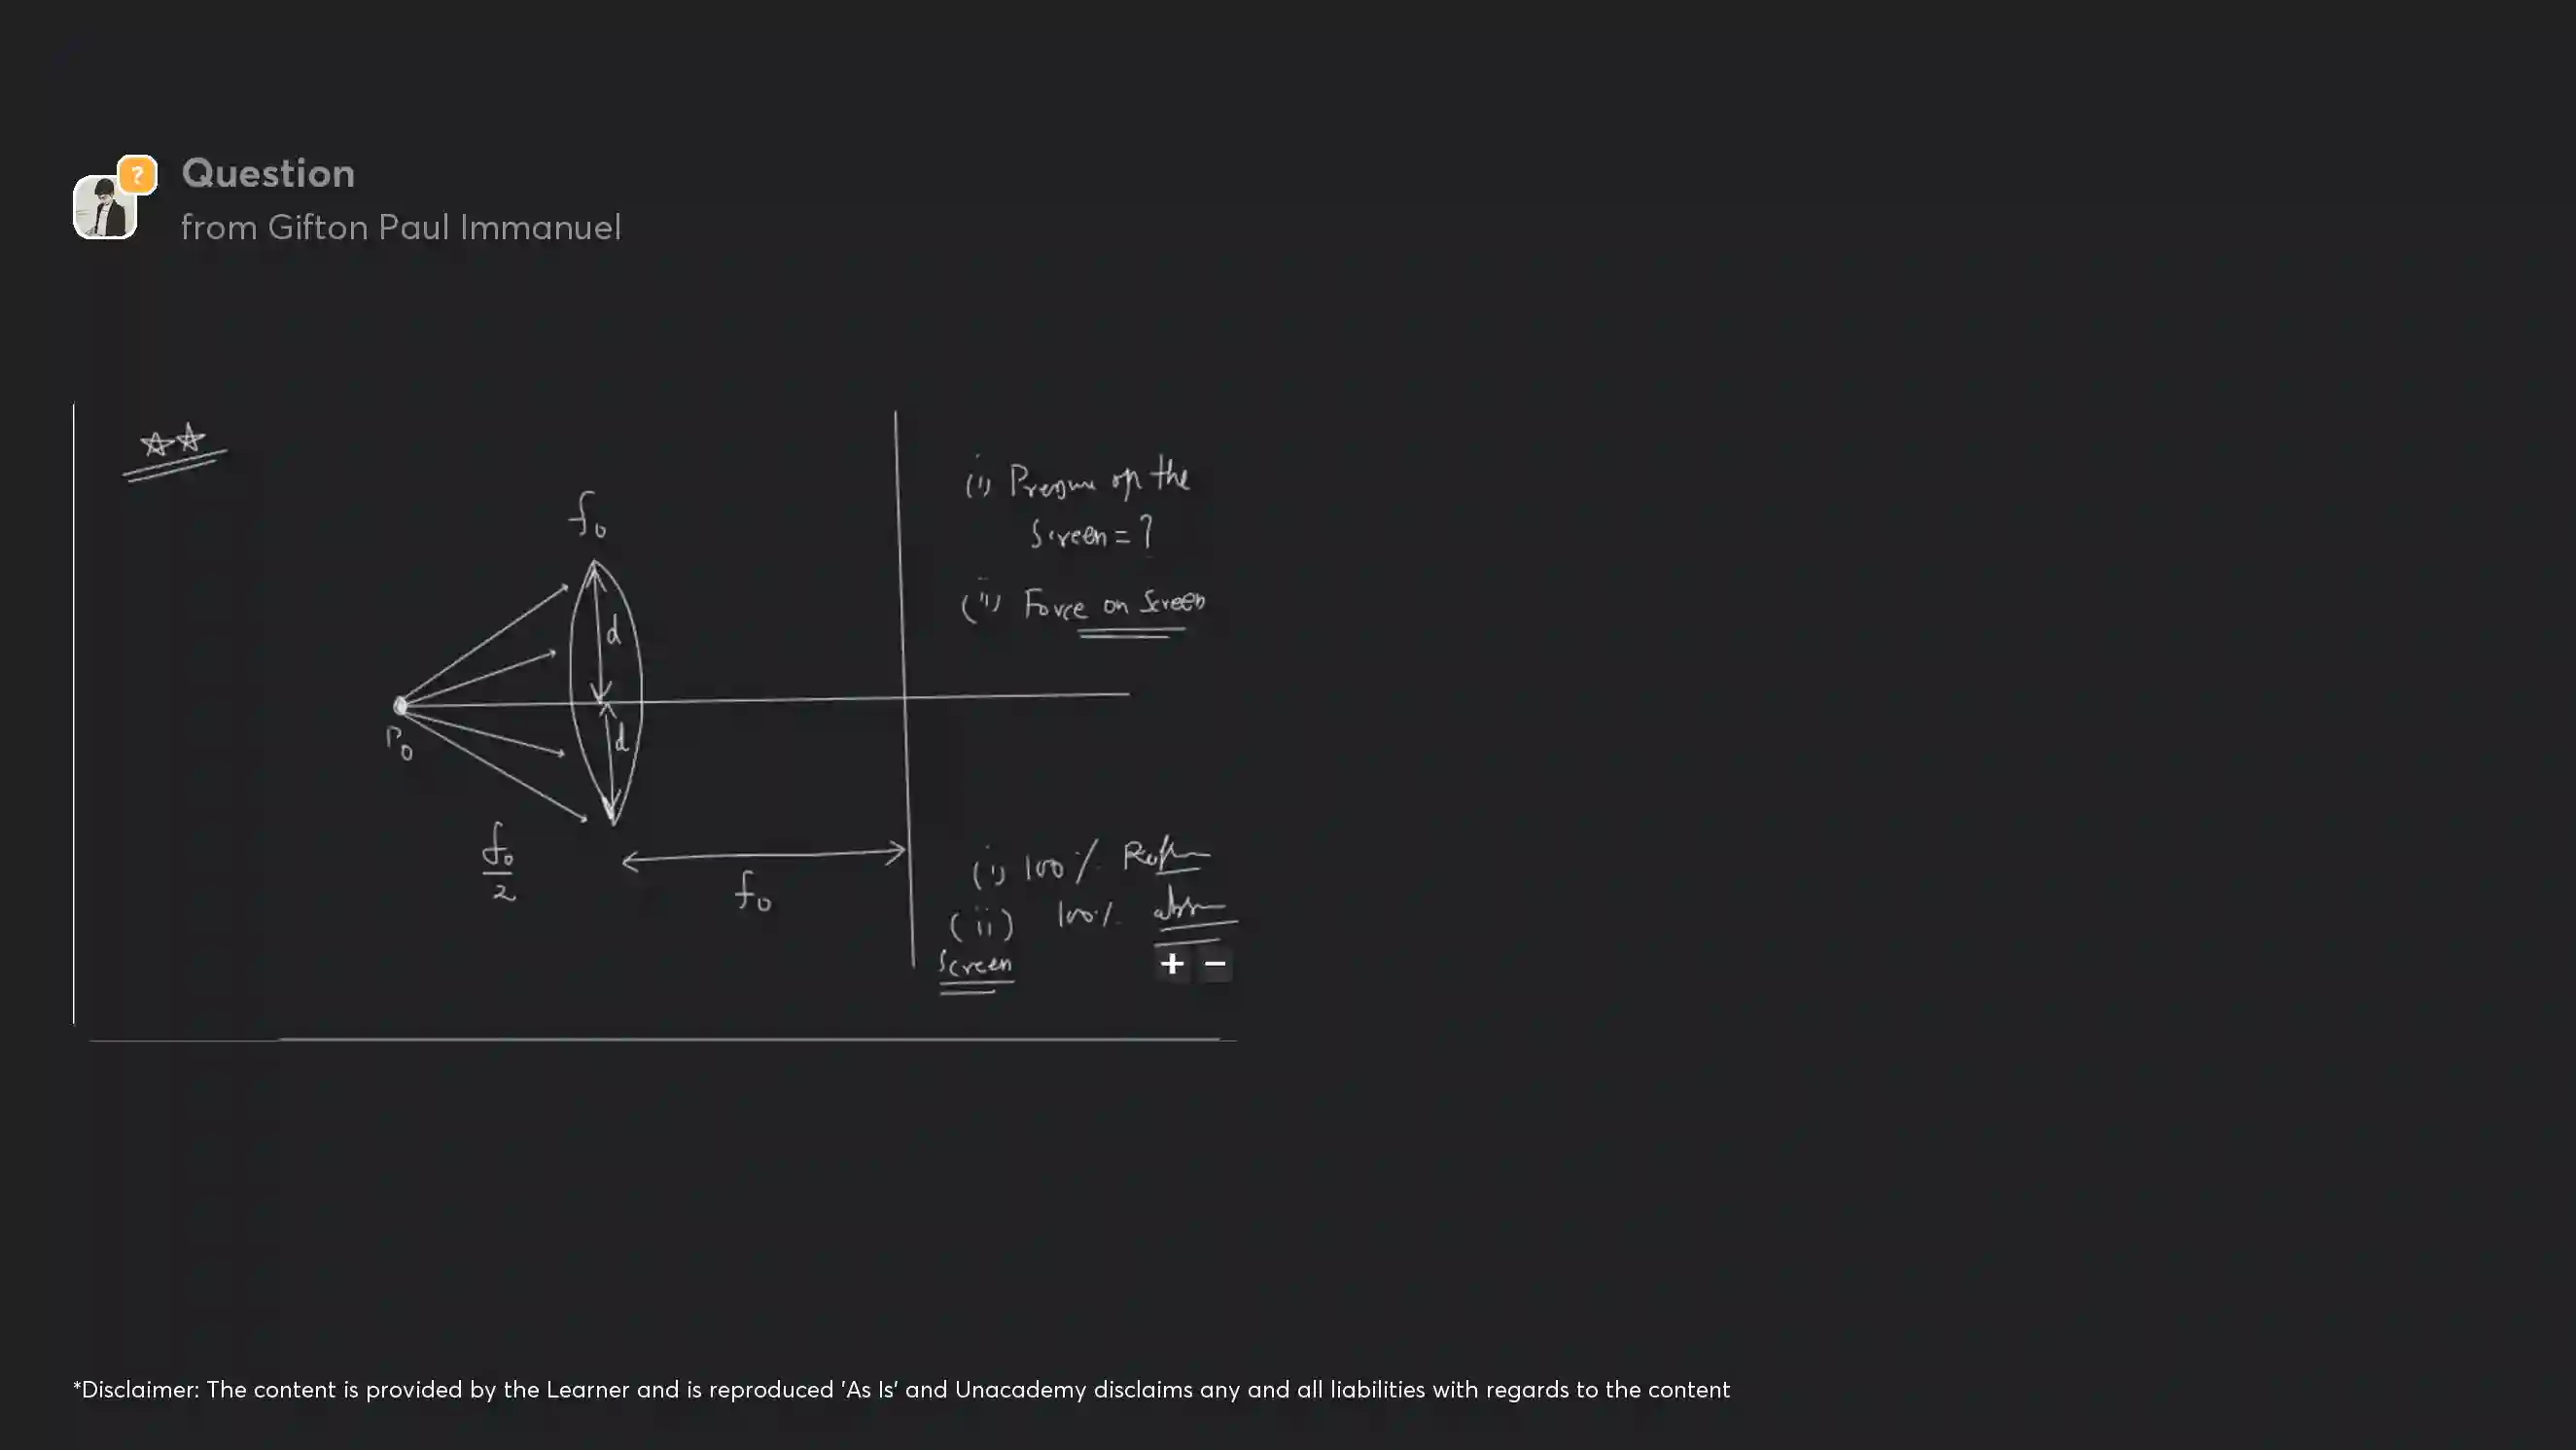 ?
Question
from Gifton Paul Immanuel
f₀
(i) of the
Screen = ?
(ii) Force on Screen
d
d
P₀
f₀/2
f₀
(i) 100 %
(ii) 100 %
Screen
+ −
*Disclaimer: The content is provided by the Learner and is reproduced 'As Is' and Unacademy disclaims any and all liabilities with regards to the content